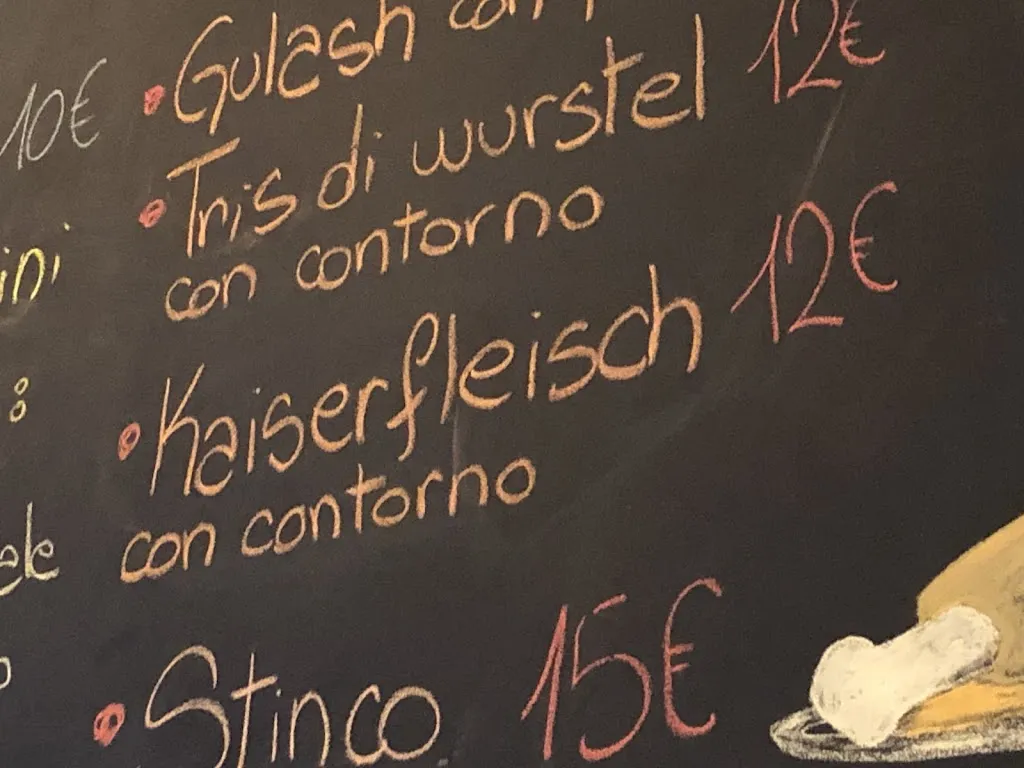 10€
• Gulash con
• Tris di wurstel 12€
con contorno
ini
• Kaiserfleisch 12€
con contorno
• Stinco 15€